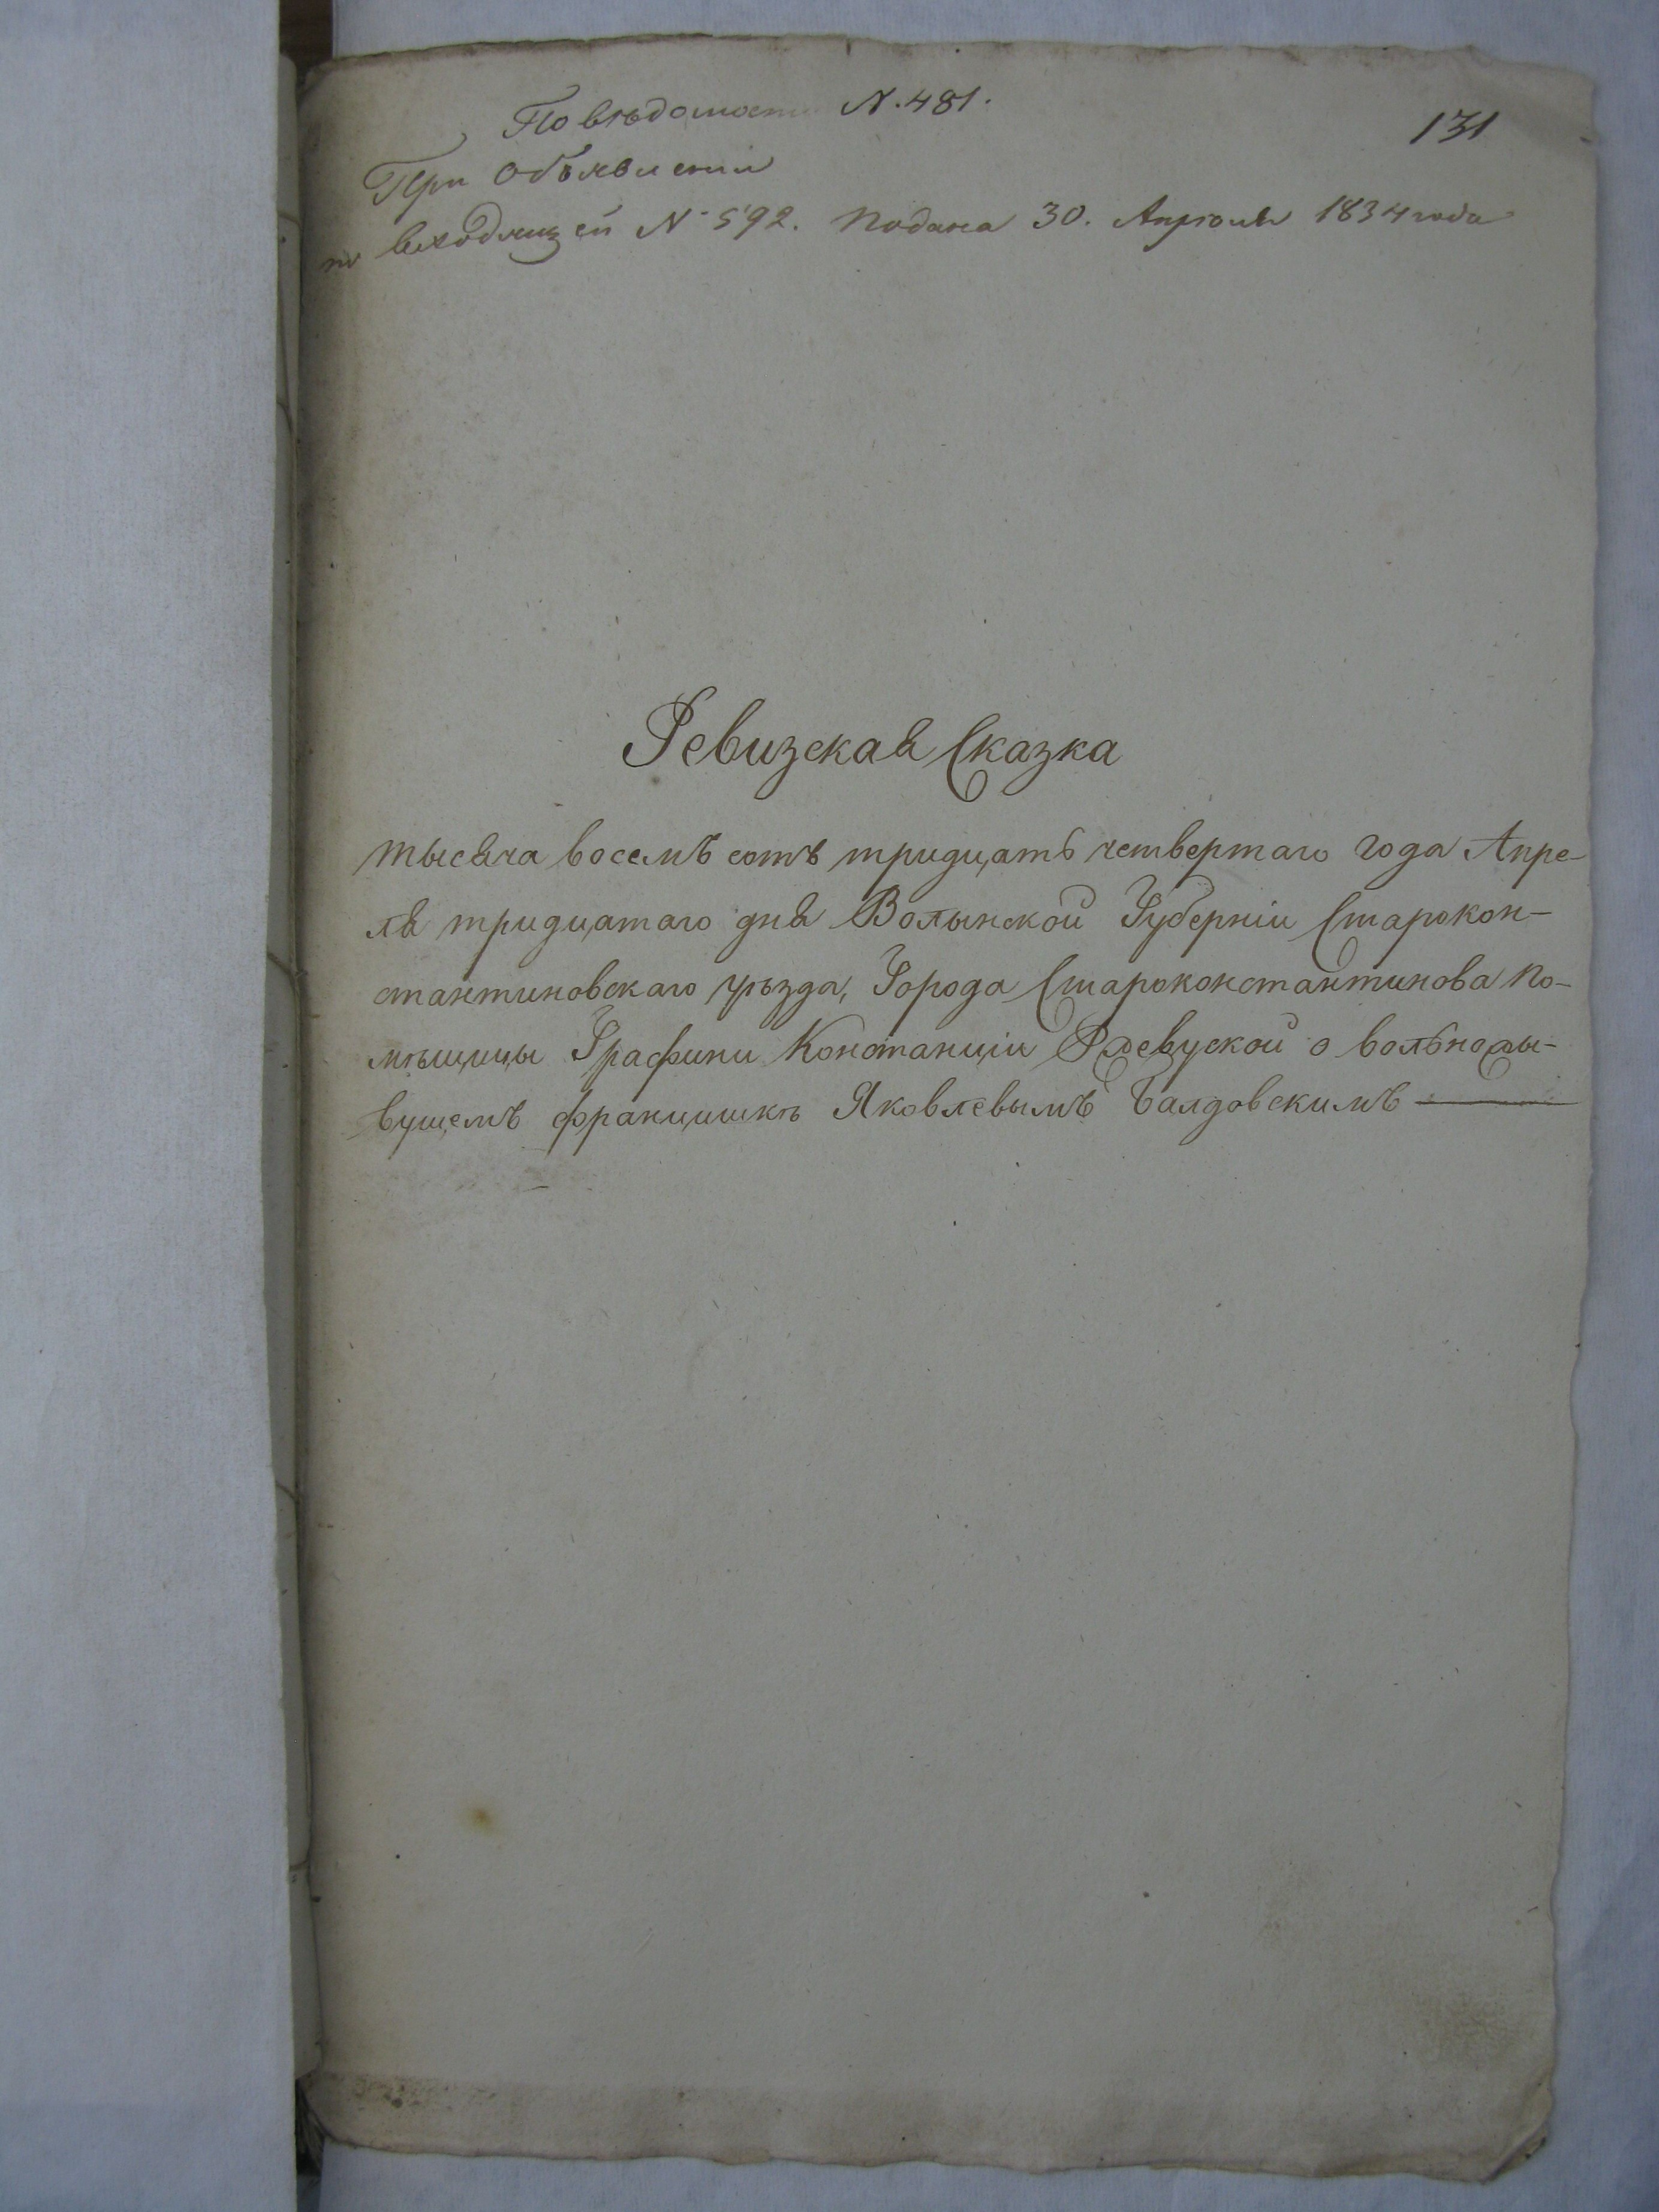 По вѣдомости N. 481.
131
При объявленіи
по входящей N. 592. подана 30. Апрѣля 1834 года
Ревизская Сказка
тысяча восемь сотъ тридцать четвертаго года Апре-
ля тридцатаго дня Волынской Губерніи Старокон-
стантиновскаго уѣзда, Города Староконстантинова По-
мѣщицы Графини Констанціи Ржевуской о вольножы-
вущемъ Францишкѣ Яковлевымъ Балдовскимъ